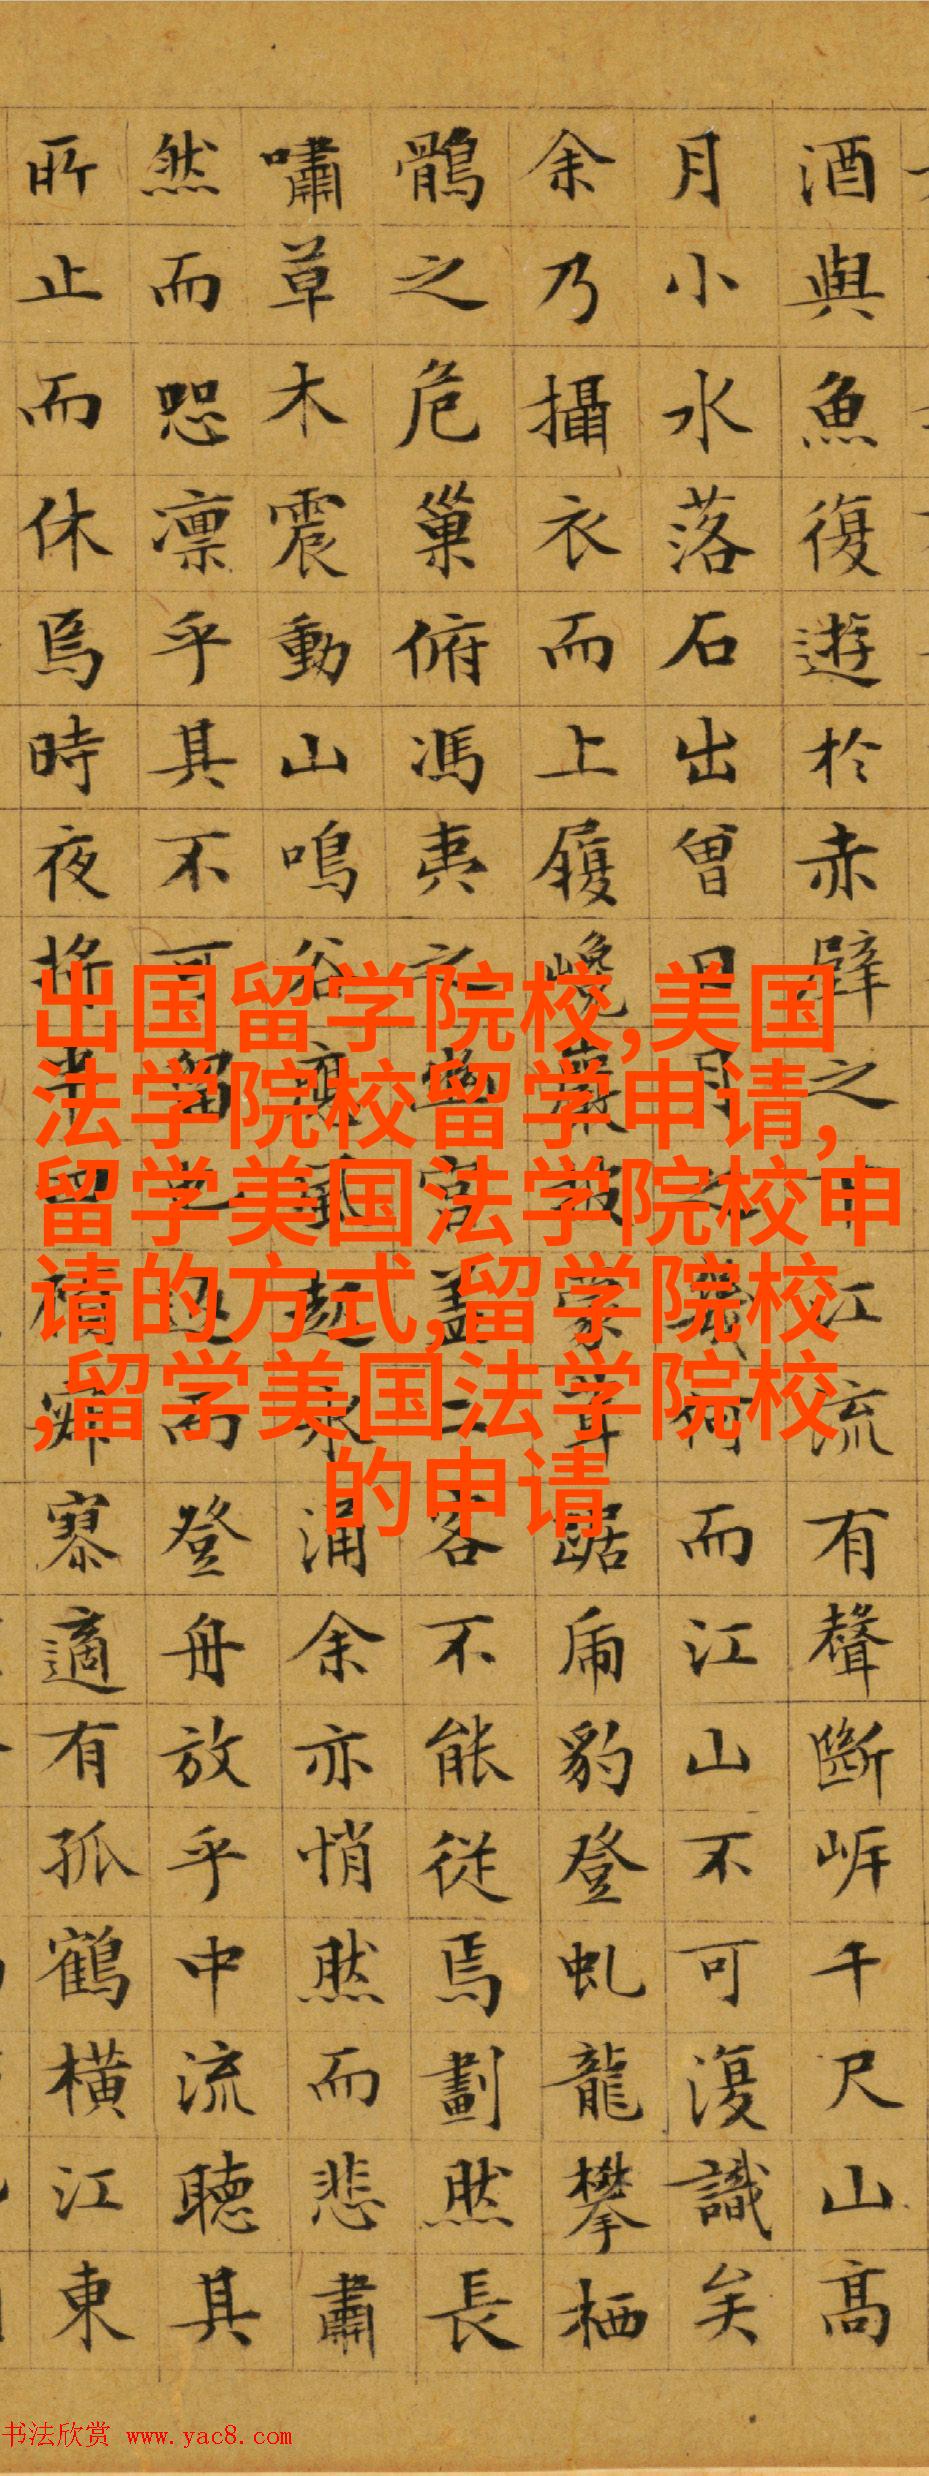 酒與魚復遊於赤壁之下江流有聲斷岸千尺山高
月小水落石出曾日月之幾何而江山不可復識矣
余乃攝衣而上履巉巖披蒙茸踞虎豹登虬龍攀栖
鶻之危巢俯馮夷之幽宮蓋二客不能從焉劃然長
嘯草木震動山鳴谷應風起水涌余亦悄然而悲肅
然而恐凜乎其不可留也返而登舟放乎中流聽其
所止而休焉時夜將半四顧寂寥適有孤鶴橫江東
出国留学院校,美国
法学院校留学申请,
留学美国法学院校申
请的方式,留学院校
,留学美国法学院校
的申请
书法欣赏 www.yac8.com